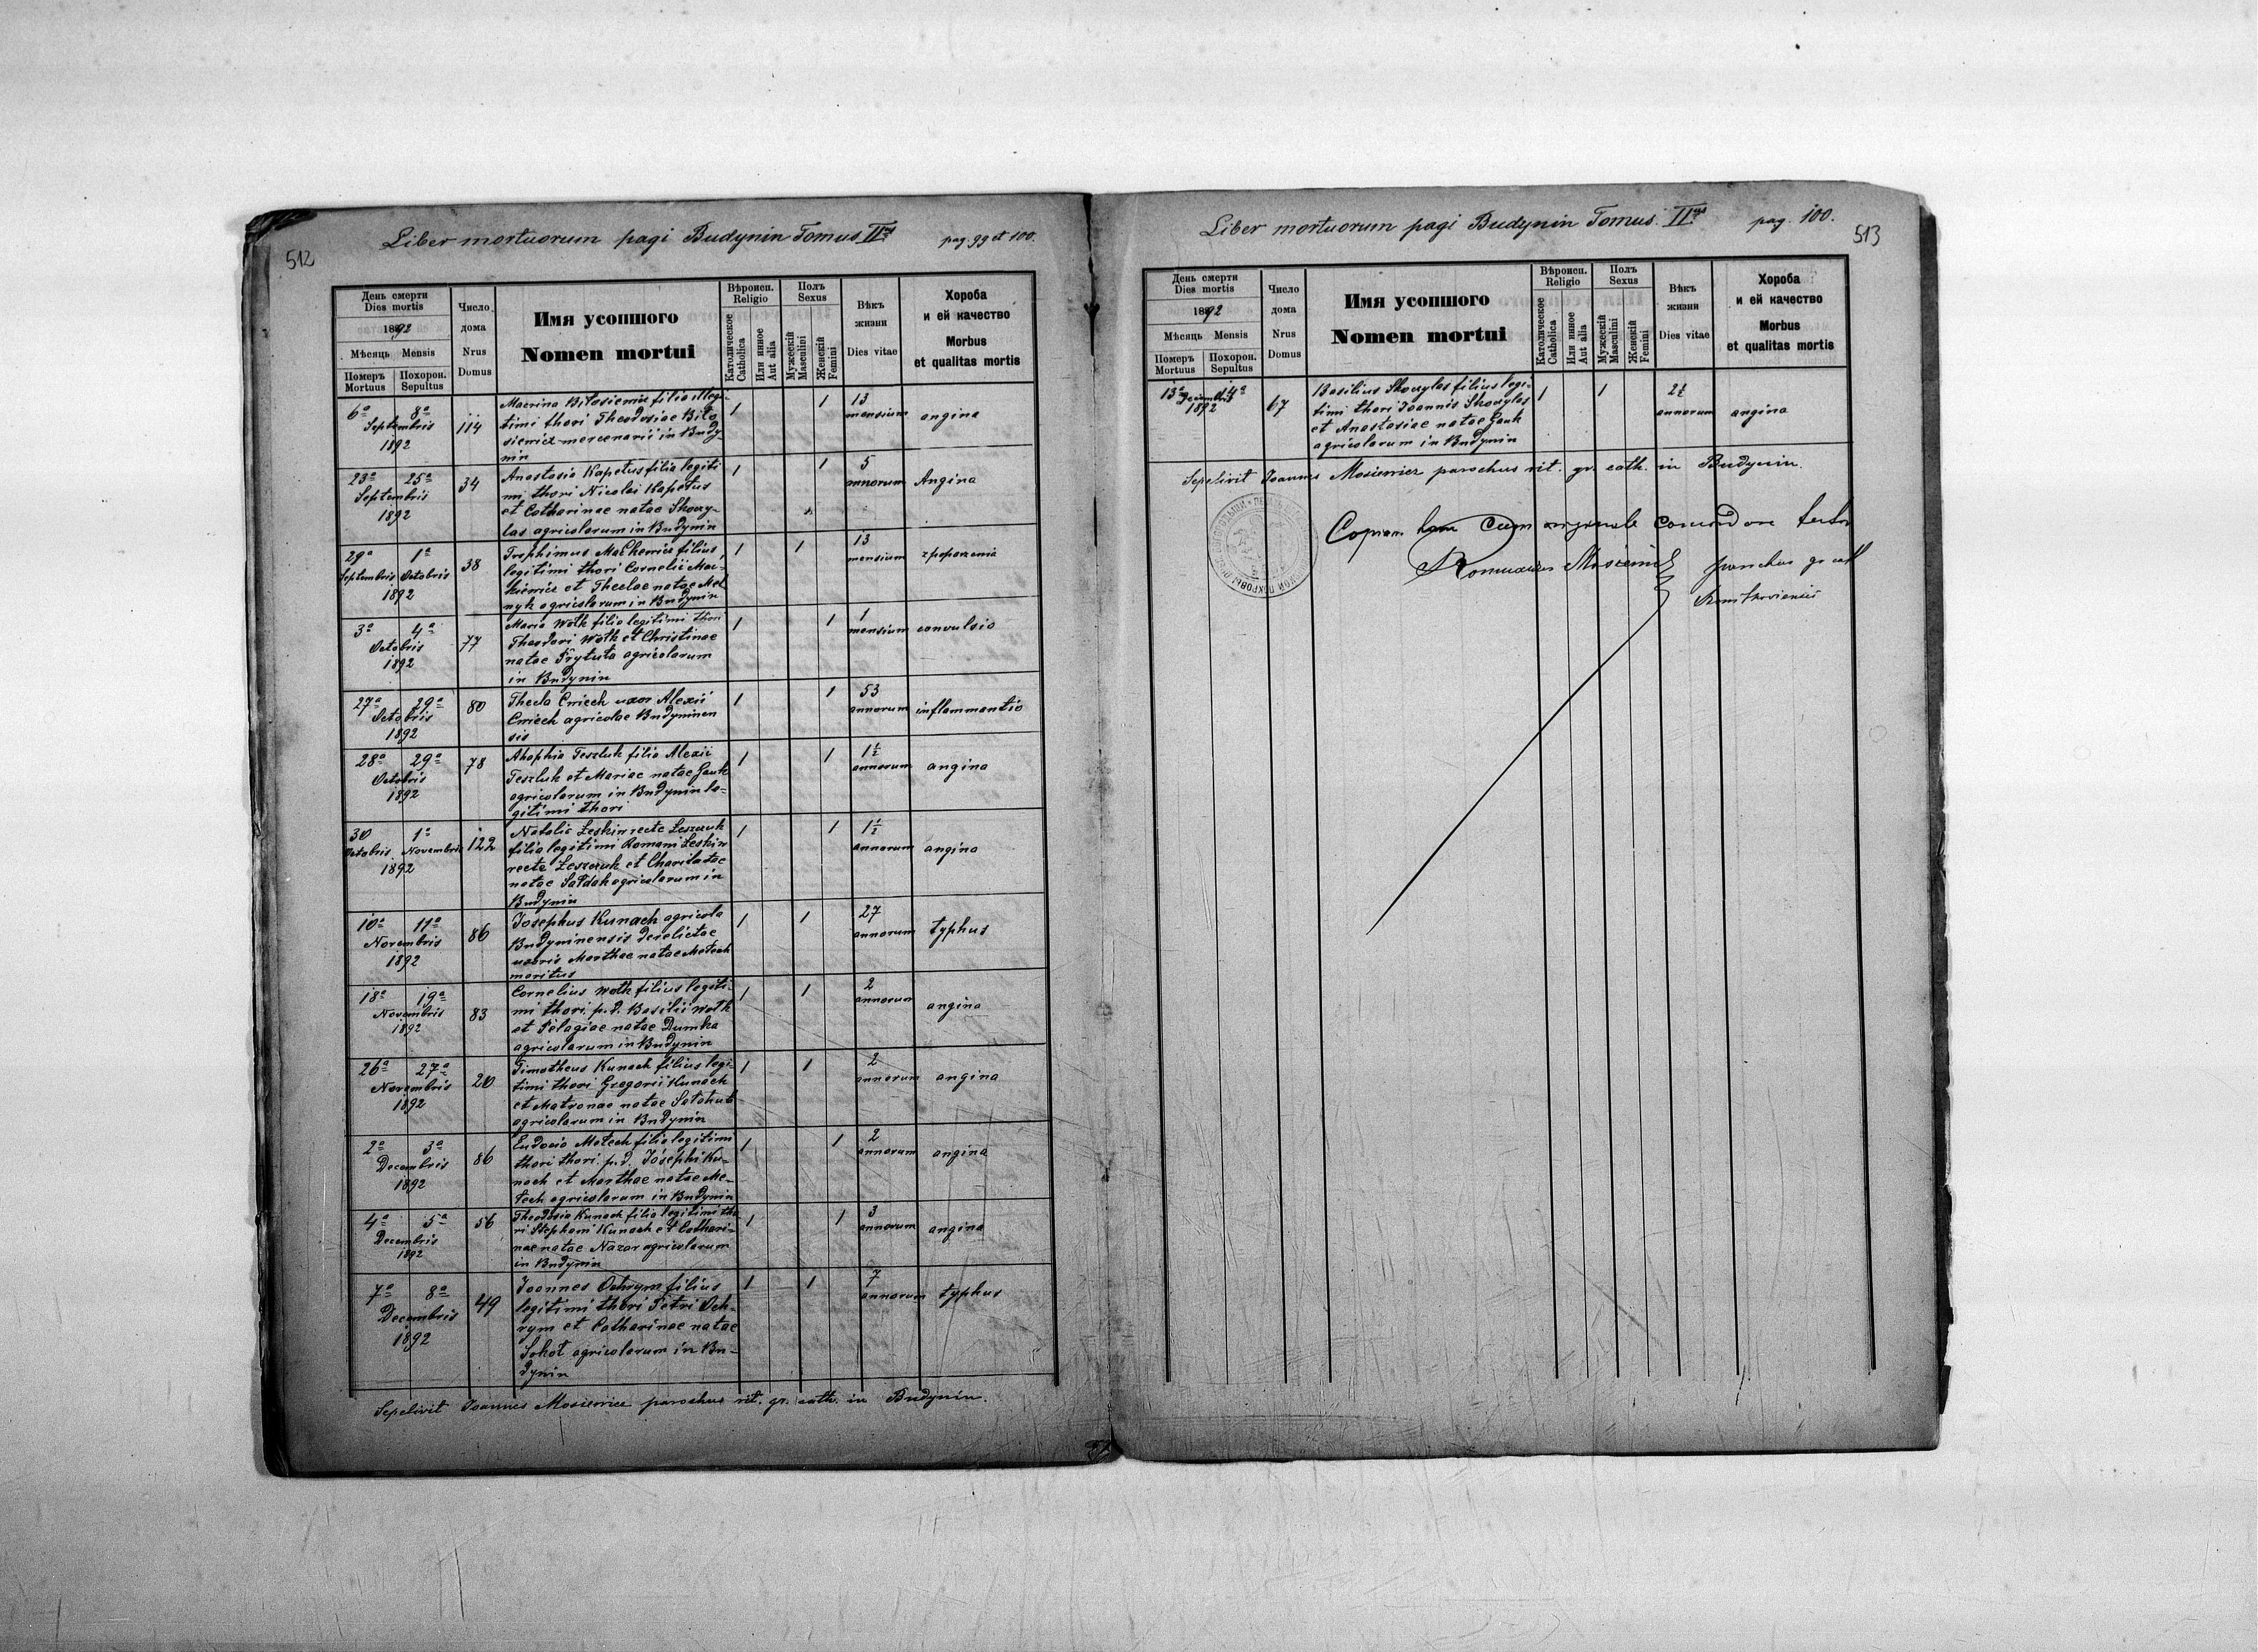 512
Liber mortuorum pagi Budynin Tomus IIus pag. 99 et 100.
День смерти
Dies mortis
1892
Мѣсяць Mensis
Померъ Похорон.
Mortuus Sepultus
Число
дома
Nrus
Domus
Имя усопшого
Nomen mortui
Вѣроисп.
Religio
Католическое
Catholica
Или инное
Aut alia
Полъ
Sexus
Мужескій
Masculini
Женскій
Femini
Вѣкъ
жизни
Dies vitae
Хороба
и ей качество
Morbus
et qualitas mortis
6a 8a
Septembris
1892
114
Macrina filia illegi-
timi thori Theodosiae Biło
siewicz mercenarii in Budy-
nin
1 1
13
mensium
angina
23a 25a
Septembris
1892
34
Anastasia Kapetus filia legiti
mi thori Nicolai Kapetus
et Catharinae natae Skoczy-
las agricolarum in Budynin
1 1
5
annorum
Angina
29a 1a
Septembris Octobris
1892
38
Trophimus filius
legitimi thori Cornelii Mac-
kiewicz et Theclae natae Mel
nyk agricolarum in Budynin
1 1
13
mensium
3a 4a
Octobris
1892
77
Maria Wołk filia legitimi thori
Theodori Wołk et Christinae
natae Prytuła agricolarum
in Budynin
1 1
1
mensium
convulsio
27a 29a
Octobris
1892
80
Thecla Cwiech uxor Alexii
Cwiech agricolae Budyninen
sis
1 1
53
annorum
inflammantio
28a 29a
Octobris
1892
78
Ahaphia Teszluk filia Alexii
Teszluk et Mariae natae Gauk
agricolarum in Budynin le-
gitimi thori
1 1
1½
annorum
angina
30 1a
Octobris Novembris
1892
122
Natalia Leskiw recte Leszczuk
filia legitimi Romani Leskiw
recte Leszczuk et
natae agricolarum in
Budynin
1 1
1½
annorum
angina
10a 11a
Novembris
1892
86
Josephus Kunach agricola
Budyninensis derelictae
uxoris Marthae natae Mełech
maritus
1 1
27
annorum
typhus
18a 19a
Novembris
1892
83
Cornelius Wołk filius legiti-
mi thori p.d. Basilii Wołk
et Pelagiae natae Dumka
agricolarum in Budynin
1 1
2
annorum
angina
26a 27a
Novembris
1892
20
Timotheus Kunach filius legi-
timi thori Gregorii Kunach
et Matronae natae
agricolarum in Budynin
1 1
2
annorum
angina
2a 3a
Decembris
1892
86
Eudocia Mełech filia legitimi
thori thori p.d. Josephi Ku-
nach et Marthae natae Me-
łech agricolarum in Budynin
1 1
2
annorum
angina
4a 5a
Decembris
1892
56
Theodosia Kunach filia legitimi tho
ri Stephani Kunach et Cathari-
nae natae Nazar agricolarum
in Budynin
1 1
3
annorum
angina
7a 8a
Decembris
1892
49
Joannes Ochrym filius
legitimi thori Petri Och-
rym et Catharinae natae
Sokoł agricolarum in Bu-
dynin
1 1
7
annorum
typhus
Sepelivit Joannes Mosiewicz parochus rit. gr. cath. in Budynin.
Liber mortuorum pagi Budynin Tomus. IIus pag. 100.
513
День смерти
Dies mortis
1892
Мѣсяць Mensis
Померъ Похорон.
Mortuus Sepultus
Число
дома
Nrus
Domus
Имя усопшого
Nomen mortui
Вѣроисп.
Religio
Католическое
Catholica
Или инное
Aut alia
Полъ
Sexus
Мужескій
Masculini
Женскій
Femini
Вѣкъ
жизни
Dies vitae
Хороба
и ей качество
Morbus
et qualitas mortis
13a 14a
Decembris
1892
67
Basilius Skoczylas filius legi-
timi thori Joannis Skoczylas
et Anastasiae natae Gauk
agricolarum in Budynin
1 1
2½
annorum
angina
Sepelivit Joannes Mosiewicz parochus rit. gr. cath. in Budynin.
Copiam hanc cum originale
Romualdus Mosiewicz parochus gr cath